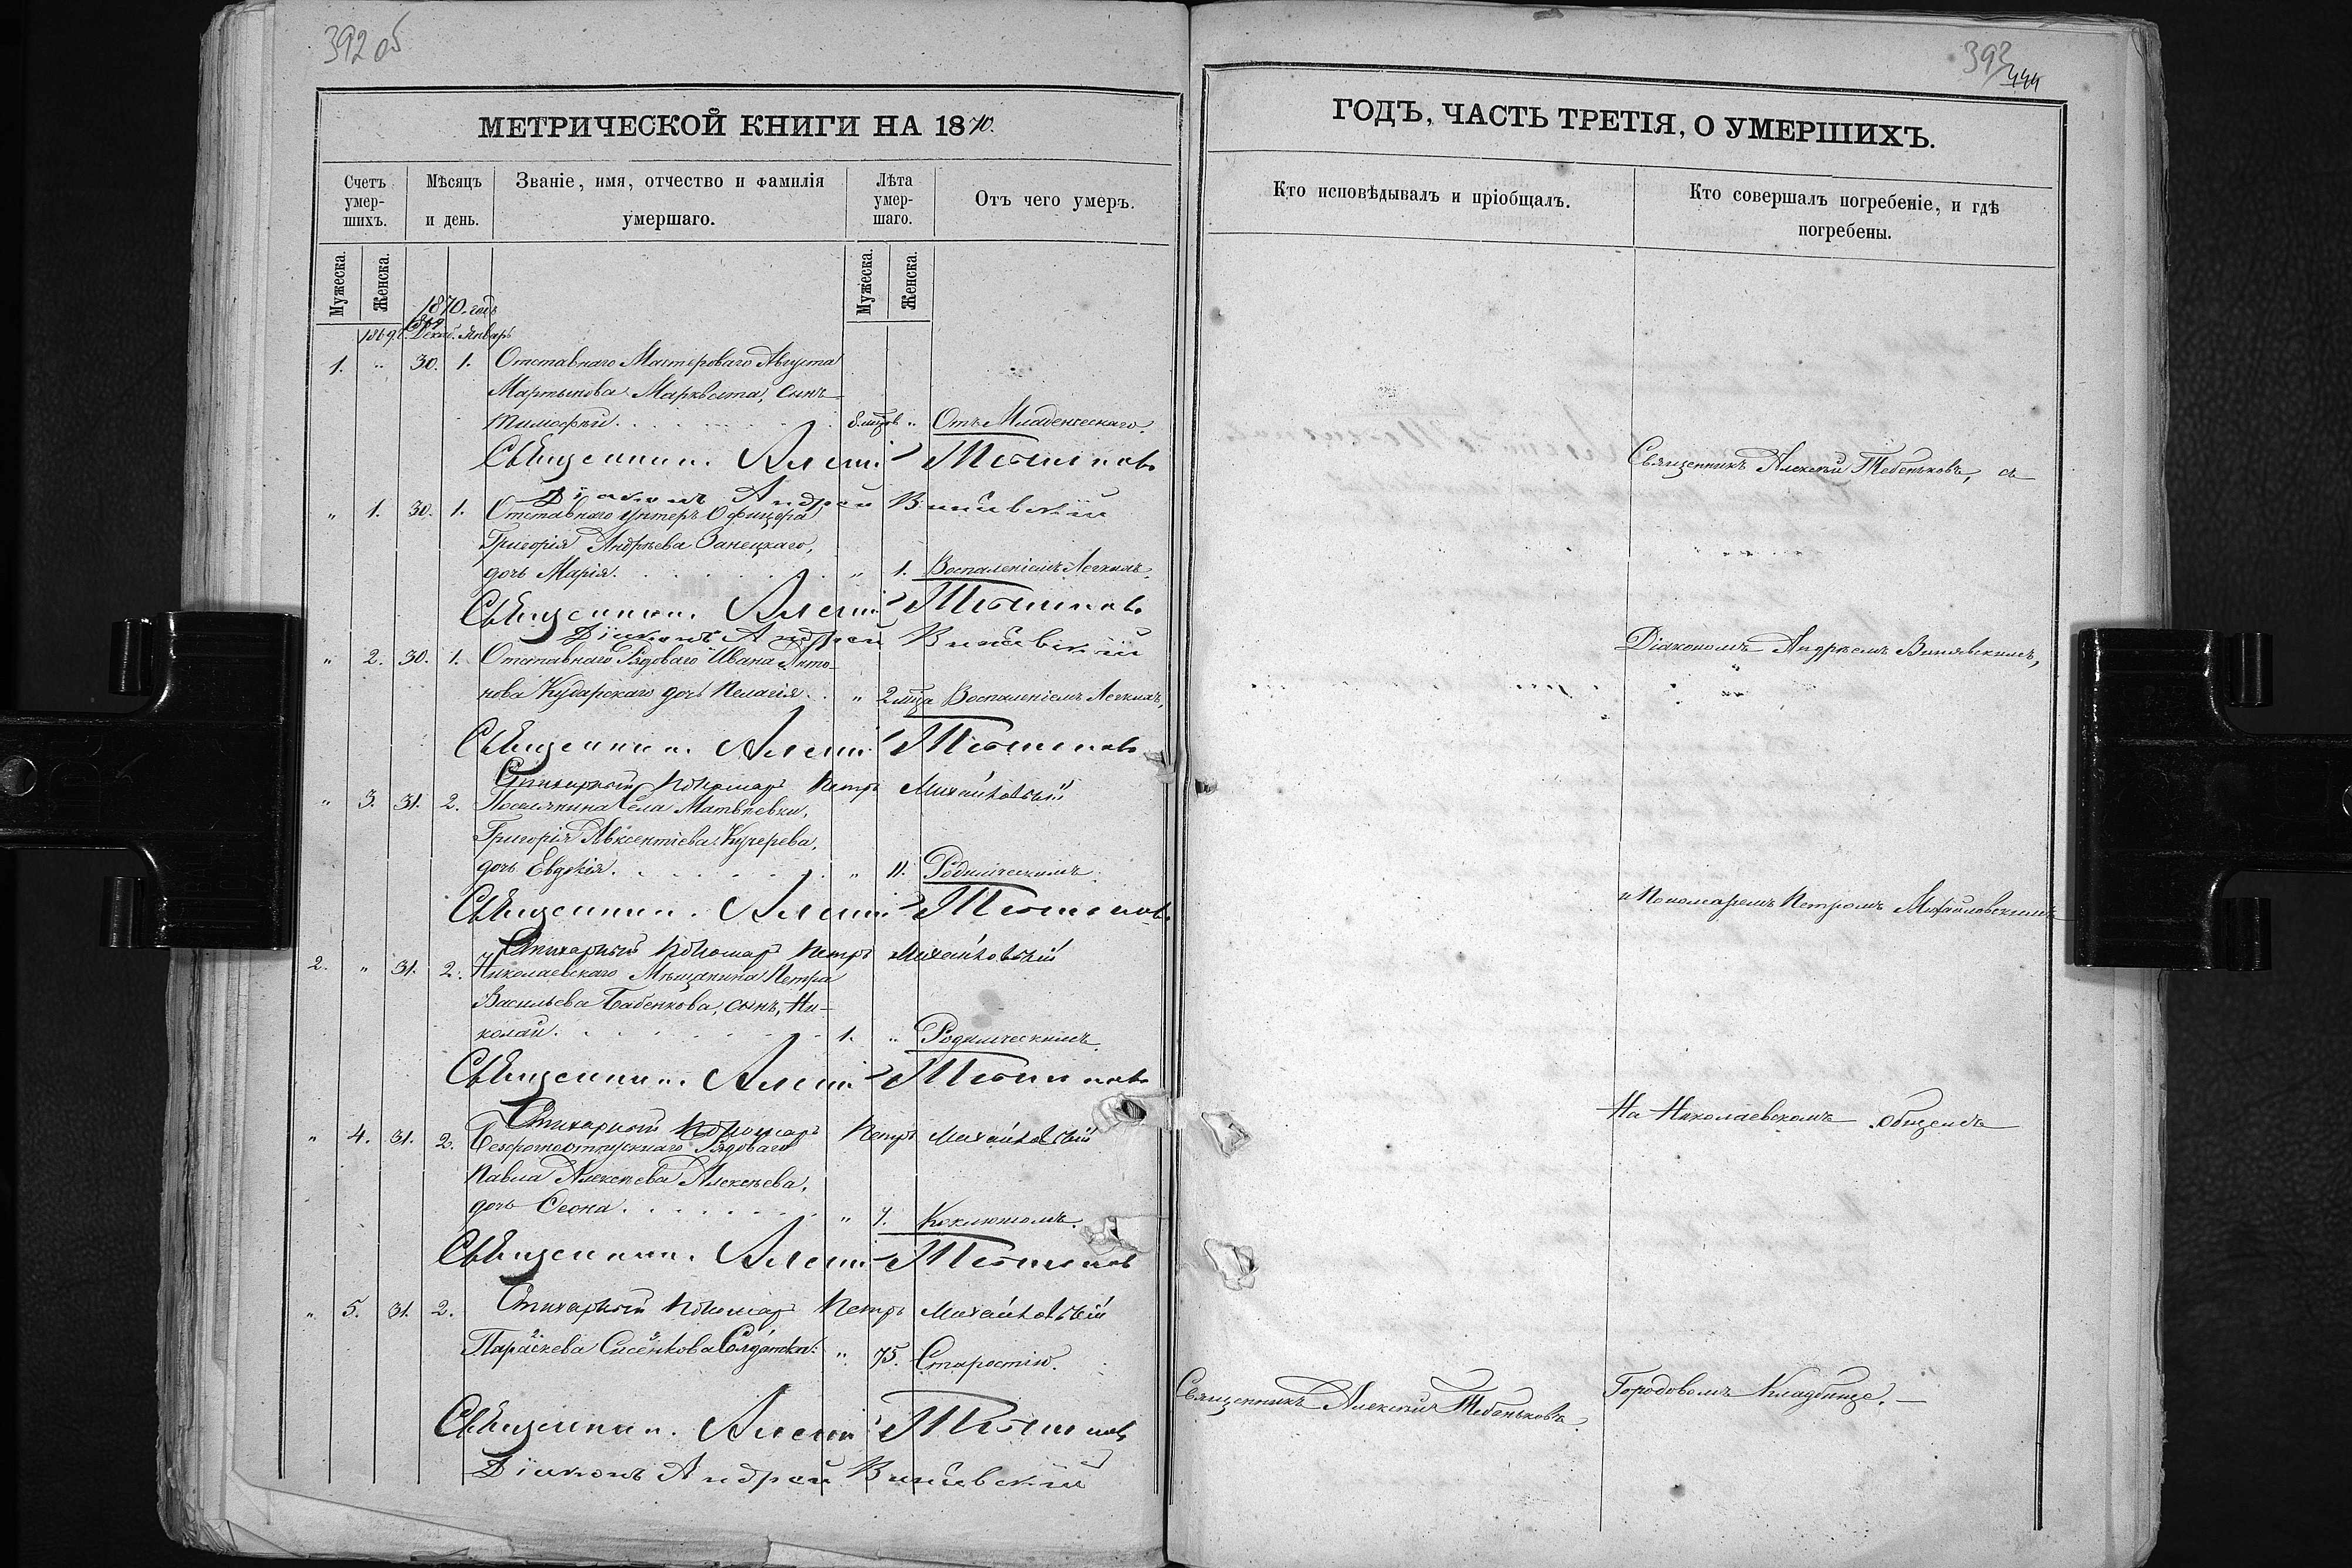 392 об
МЕТРИЧЕСКОЙ КНИГИ НА 1870.
Счетъ умер-шихъ.
Мѣсяцъ и день.
Званіе, имя, отчество и фамилія умершаго.
Лѣта умер-шаго.
Отъ чего умеръ.
Мужеска.
Женска.
Мужеска.
Женска.
1870. годъ
1869 г. Декаб. Январь
1. " 30. 1. Отставнаго Мастероваго Августа
Мартынова Марквота, сынъ
Тимофей. 8 мцов " Отъ Младенческаго.
Священникъ Алексій Тебеньковъ
Діаконъ Андрей Винявскій
" 1. 30. 1. Отставнаго Унтеръ Офицера
Григорія Андрѣева Занецкаго,
дочь Марія. " 1. Воспаленіемъ Легкихъ.
Священникъ Алексій Тебеньковъ
Діаконъ Андрей Винявскій
" 2. 30. 1. Отставнаго Рядоваго Ивана Анто-
нова Кударскаго дочь Пелагія. " 2 мца Воспаленіемъ Легкихъ,
Священникъ Алексій Тебеньковъ
Стихарный Пономарь Петръ Михайловскій
" 3. 31. 2. Поселянина села Матвѣевки,
Григорія Авксентіева Кучерева,
дочь Евдокія. " 11. Родимческимъ.
Священникъ Алексій Тебеньковъ
Стихарный Пономарь Петръ Михайловскій
2. " 31. 2. Николаевскаго Мѣщанина Петра
Васильева Бабенкова, сынъ, Ни-
колай. 1. " Родимческимъ.
Священникъ Алексій Тебеньковъ
Стихарный Пономарь Петръ Михайловскій
" 4. 31. 2. Безсрочноотпускнаго Рядоваго
Павла Алексѣева Алексѣева,
дочь Ѳеона. " Коклюшомъ.
Священникъ Алексій Тебеньковъ
Стихарный Пономарь Петръ Михайловскій
" 5. 31. 2.
Параскева Сисенкова Солдатка. " 75. Старостію.
Священникъ Алексій Тебеньковъ
Діаконъ Андрей Винявскій
393
444
ГОДЪ, ЧАСТЬ ТРЕТІЯ, О УМЕРШИХЪ.
Кто исповѣдывалъ и пріобщалъ.
Кто совершалъ погребеніе, и гдѣ погребены.
Священникъ Алексѣй Тебеньковъ, съ
Діакономъ Андрѣемъ Винявскимъ,
и Пономаремъ Петромъ Михайловскимъ
На Николаевскомъ общемъ
Священникъ Алексѣй Тебеньковъ.
Городовомъ Кладбище.